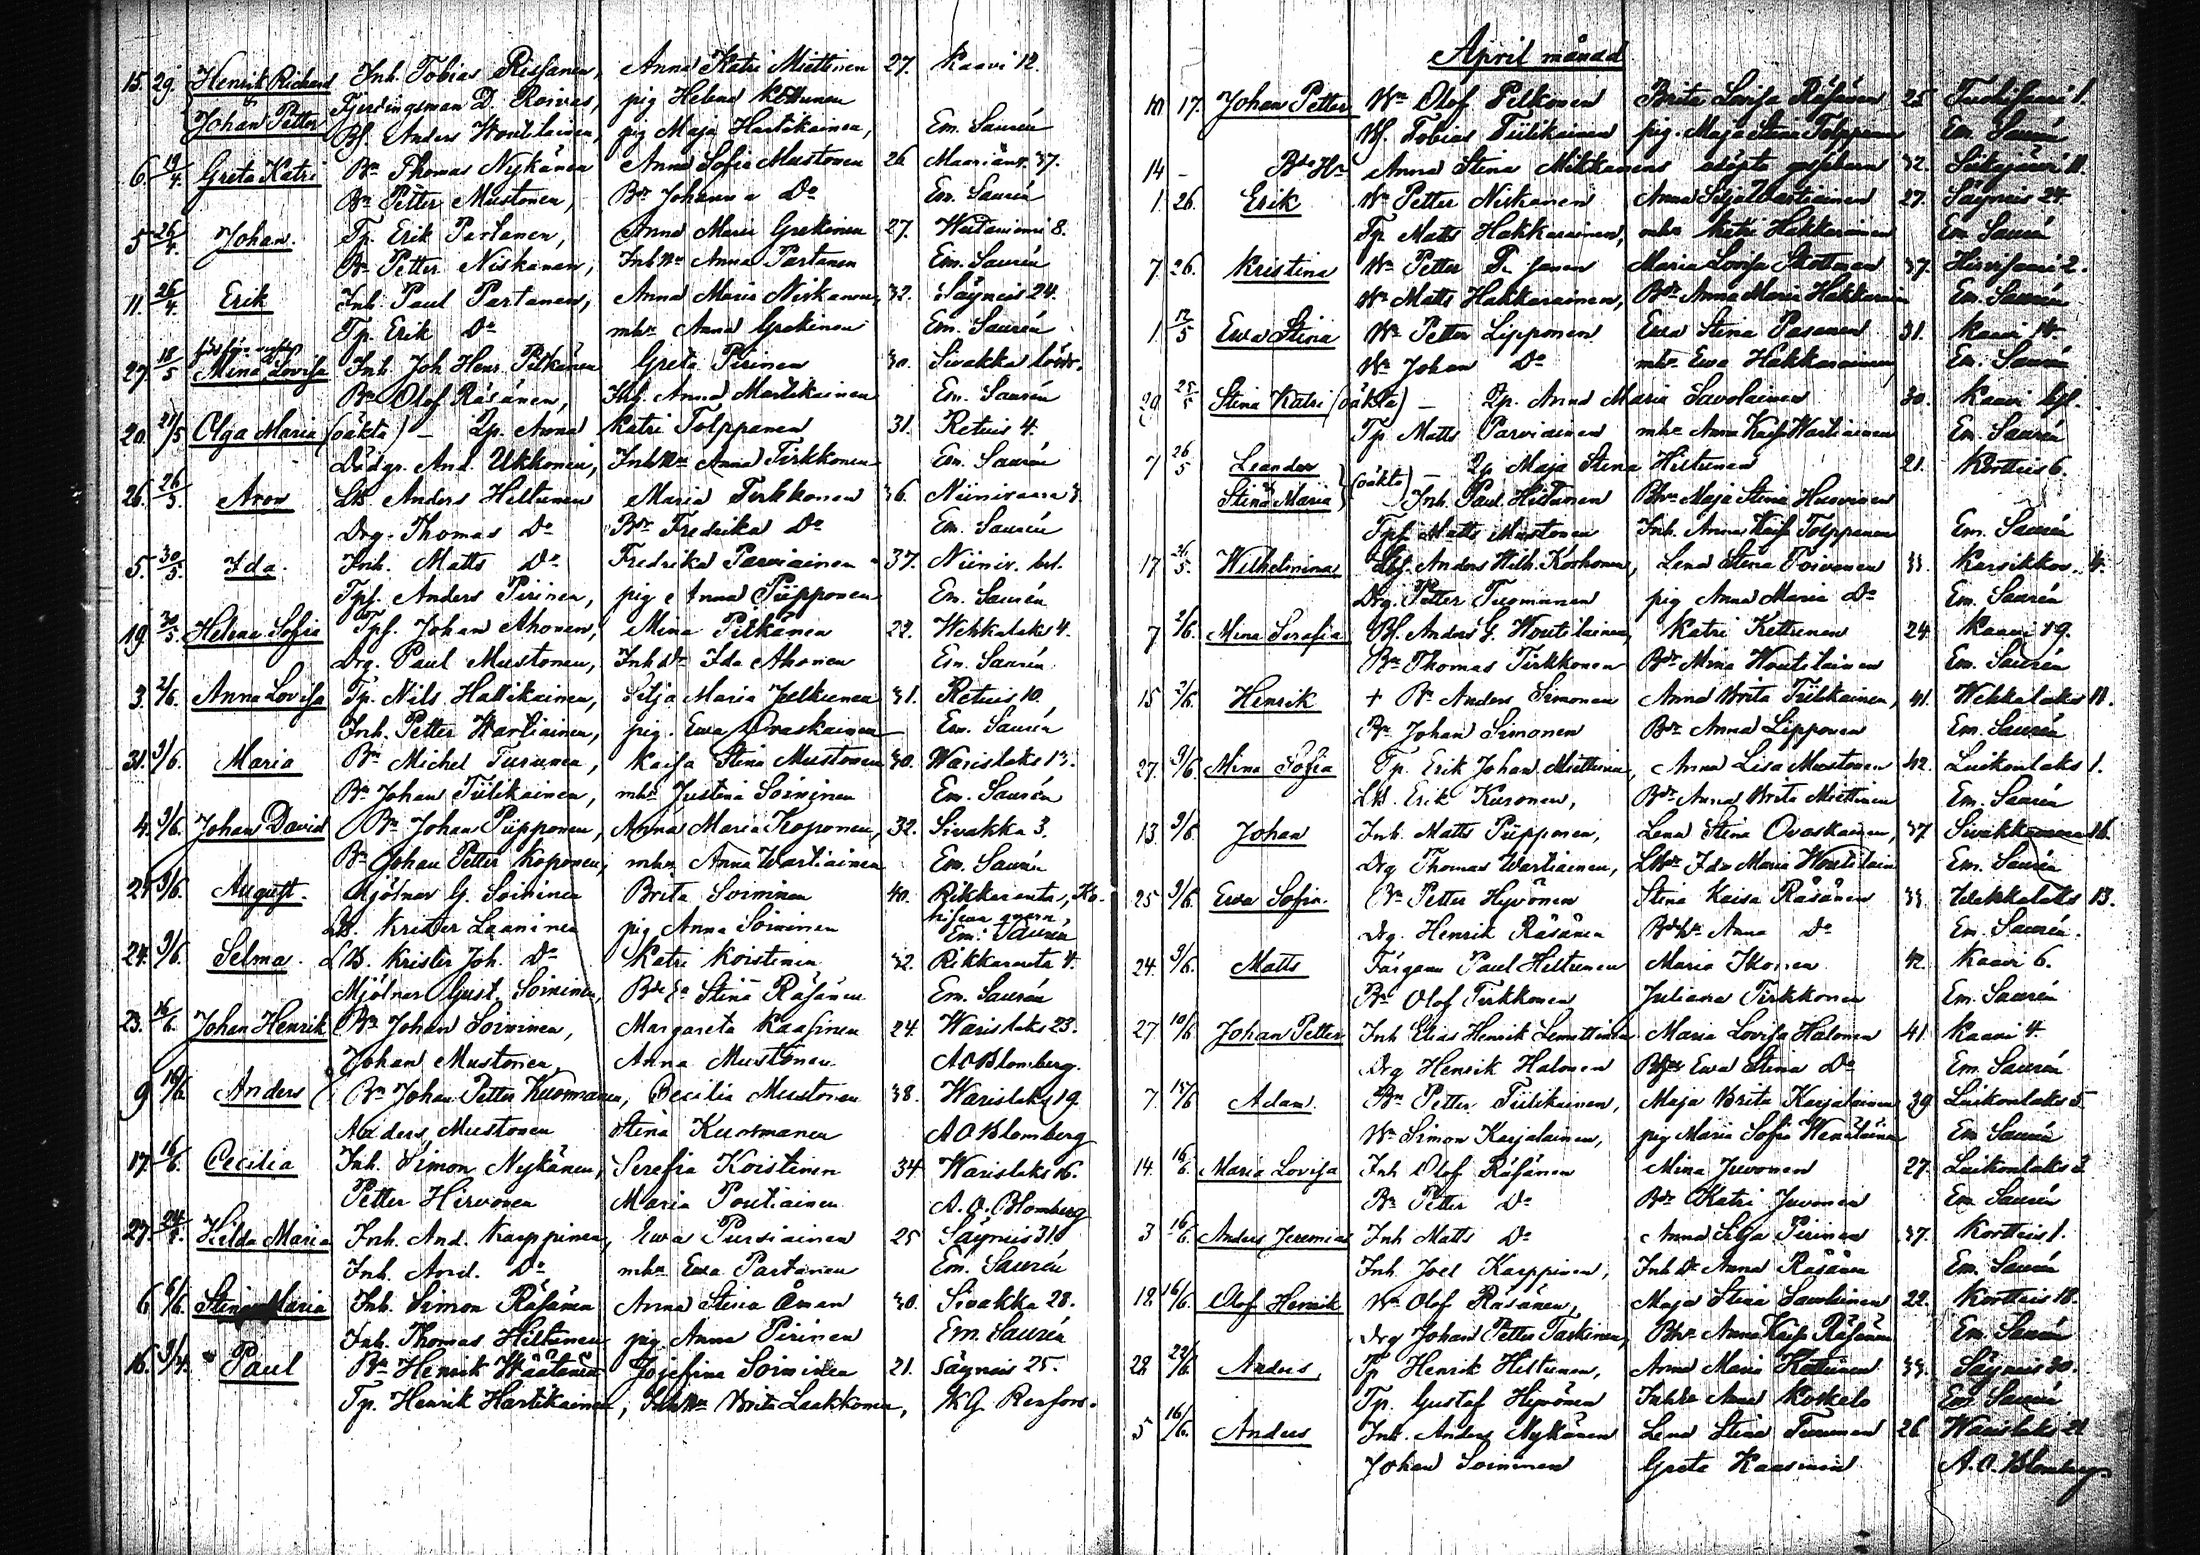 15. 29. Henrik Richard Inh. Tobias Rissanen, Anna Katri Miettinen 27. Kaavi 12.
& Fjerdingsman D. Roivas, pig Helena Kettunen
Johan Petter Bf. Anders Woutilainen, pig Maja Hartikainen, Em. Saurén
6. 19/4. Greta Katri Bn Thomas Nykänen Anna Sofia Mustonen 26 37.
Bn Petter Mustonen, Bdr Johanna Do Em. Saurén
5 26/4. Johan. Tp. Erik Partanen, Anna Maria Grekinen 27. 8.
Bn Petter Niskanen, Inhwn Anna Partanen Em. Saurén
11. 26/4. Erik Inh. Paul Partanen, Anna Maria Niskanen, 32. Säyneis 24.
Tp. Erik Do mhn Anna Grekinen Em. Saurén
27. 18/5 Mina Lovisa Inh. Joh Henr. Pitkänen Greta Pirinen 30. Sivakka
Bn Olof Räsänen, Anna Martikainen Em. Saurén
20. 21/5 Olga Maria (oäkta) – Qp. Anna Katri Tolppanen 31. Retuis 4.
And. Ukkonen, Inhwn Anna Tirkkonen Em. Saurén
26. 26/5. Aron LB. Anders Hiltunen Maria Tirkkonen 36. Niinivaara
Drg. Thomas Do Bdr Fredrika Do Em. Saurén
5. 30/5. Ida. Inh. Matts Do Fredrika Parviainen 37. Niiniv. bst.
Tpf. Anders Pirinen, pig Anna Piipponen Em. Saurén
19. 30/5. Helena Sofia Tpf. Johan Ahonen, Mina Pitkänen 22. Wehkalaks 4.
Drg. Paul Mustonen, Inh Dr Ida Ahonen Em. Saurén
3. 2/6. Anna Lovisa Tp. Nils Hallikainen, Silja Maria Julkunen 31. Retuis 10.
Inh. Petter Wartiainen, pig. Ewa Ovaskainen Em. Saurén
31. 9/6. Maria Bn Michel Turunen, Kaisa Stina Mustonen 30. Warislaks 13.
Bn Johan Tiilikainen, mhn Justina Soininen Em. Saurén
4. 9/6. Johan David Bn Johan Piipponen, Anna Maria Koponen, 32. Sivakka 3.
Bn Johan Petter Koponen, mhn Anna Wartiainen Em. Saurén
24. 9/6. August. Mjölnar G. Soininen Brita Soininen 40. Rikkaranta,
LB. Krister Laaninen pig Anna Soininen Em. Saurén
24. 9/6. Selma. LB. Krister Joh. Do Katri Koistinen 32. Rikkaranta 4.
Mjölnar Gust. Soininen, Stina Räsänen Em. Saurén
23. 16/6. Johan Henrik Bn Johan Soininen, Margareta Kaasinen 24. Warislaks 23.
Johan Mustonen, Anna Mustonen A O Blomberg.
9 16/6. Anders Bn Johan Petter Kuosmanen, Cecilia Mustonen 38. Warislaks 19.
Anders Mustonen Stina Kuosmanen A O Blomberg
17. 16/6. Cecilia Inh. Simon Nykänen, Serafia Koistinen 34. Warislaks 16.
Petter Hirvonen Maria Poutiainen A. O. Blomberg
27. Hilda Maria Inh. And. Karppinen, Ewa Pursiainen 25 Säyneis 31.
Inh. And. Do mhn Ewa Partanen Em. Saurén
6 6/6. Stina Maria Inh. Simon Räsänen Anna Stina Åman 30. Sivakka 28.
Inh. Thomas Hiltunen pig Anna Pirinen Em. Saurén
16. Paul Bn Henrik Wäätänen Josefina Soininen 21. Säyneis 25.
Tp. Henrik Hartikainen, Inhwn Brita Laakkonen, K G Renfors.
April månad
10 17. Johan Petter Wn Olof Pelkonen Brita Lovisa Räsänen 25
Bf. Tobias Tiilikainen pig. Maja Stina Tolppanen Em. Saurén
14 – Anna Stina Mikkanens gossebarn 32. Siikajärvi 11.
1. 26. Erik Wn Petter Niskanen Anna Silja Wartiainen 27. Säyneis 24.
Tp. Matts Hakkarainen, mhn Katri Hakkarainen Em. Saurén
7 26. Kristina Wn Petter Maria Lovisa Skottman 37. 2.
Wn Matts Hakkarainen, Bdr Anna Maria Hakkarain Em. Saurén
1 12/5 Ewa Stina Wn Petter Lipponen Ewa Stina Pasanen 31. Kaavi 14.
Wn Johan Do mhn Ewa Hakkarainen Em. Saurén
29 25/5 Stina Katri (oäkta) – Qp. Anna Maria Savolainen 30. Kaavi
Tp. Matts Parviainen mhn Anna Kaisa Wartiainen Em. Saurén
7 26/5 Leander & (oäkta) – Qp Maja Stina Hiltunen 21. Kortteis 6.
Stina Maria Inh. Paul Hiltunen Bhn Maja Stina
Tpf. Matts Mustonen Inh. Anna Kaisa Tolppanen Em. Saurén
17 26/5. Wilhelmina Anders Wilh. Korhonen, Lena Stina Toivanen 33. Karsikkov. 4.
Drg. Petter Tuomainen pig Anna Maria Do Em. Saurén
7 2/6. Mina Serafia Bf. Anders G. Woutilainen, Katri Kettunen 24. Kaavi 19.
Bn Thomas Tirkkonen Bdr Mina Woutilainen Em. Saurén
15 2/6. Henrik + Bn Anders Simonen Anna Brita Tiilikainen, 41. Wehkalaks 18.
Bn Johan Simonen Bdr Anna Lipponen Em. Saurén
27. 9/6 Mina Sofia Tp. Erik Johan Miettinen, Anna Lisa Mustonen 42. Luikonlaks 1.
LB. Erik Kuronen, Bdr Anna Brita Miettinen Em. Saurén
13. 9/6. Johan Inh. Matts Piipponen, Lena Stina Ovaskainen, 37. 16.
Drg Thomas Wartiainen, Ida Maria Woutilain Em. Saurén
25 9/6. Ewa Sofia. Bn Petter Hyvönen Stina Kaisa Räsänen 33. Wehkalaks 13.
Drg. Henrik Räsänen Anna Do Em. Saurén.
24. 9/6. Matts Färgaren Paul Hiltunen Maria Ikonen 42. Kaavi 6.
Bn Olof Tirkkonen Juliana Tirkkonen Em. Saurén
27 10/6 Johan Petter Inh Elias Henrik Lemettinen Maria Lovisa Halonen 41. Kaavi 4.
Drg Henrik Halonen Ewa Stina Do Em. Saurén
7. 15/6 Adam. Bn Petter Tiilikainen, Maja Brita Karjalainen 39 Luikonlaks 5.
Wn Simon Karjalainen, pig Maria Sofia Wenäläinen Em Saurén
14. 16/6. Maria Lovisa Inh Olof Räsänen Mina Juvonen 27. Luikonlaks 3.
Bn Petter Do Bdr Katri Juvonen Em. Saurén
3 16/6 Anders Jeremias Inh Matts Do Anna Silja Pirinen 37. Kortteis 1.
Inh. Joel Karppinen, Inh Dr Anna Räsänen Em. Saurén
18 16/6. Olof Henrik Wn Olof Räsänen, Maja Stina 22. Kortteis 18.
Drg Johan Petter Taskinen, Bhn Anna Kaisa Räsänen Em. Saurén
28. 22/6. Anders, Tp Henrik Hiltunen, Anna Maria 33. Säyneis 30.
Tp. Gustaf Hyvönen Anna Koskelo Em. Saurén
5 16/6. Anders Inh. Anders Nykänen Lena Stina Turunen 26 Warislaks 21
Johan Soininen Greta Kaasinen A. O. Blomberg